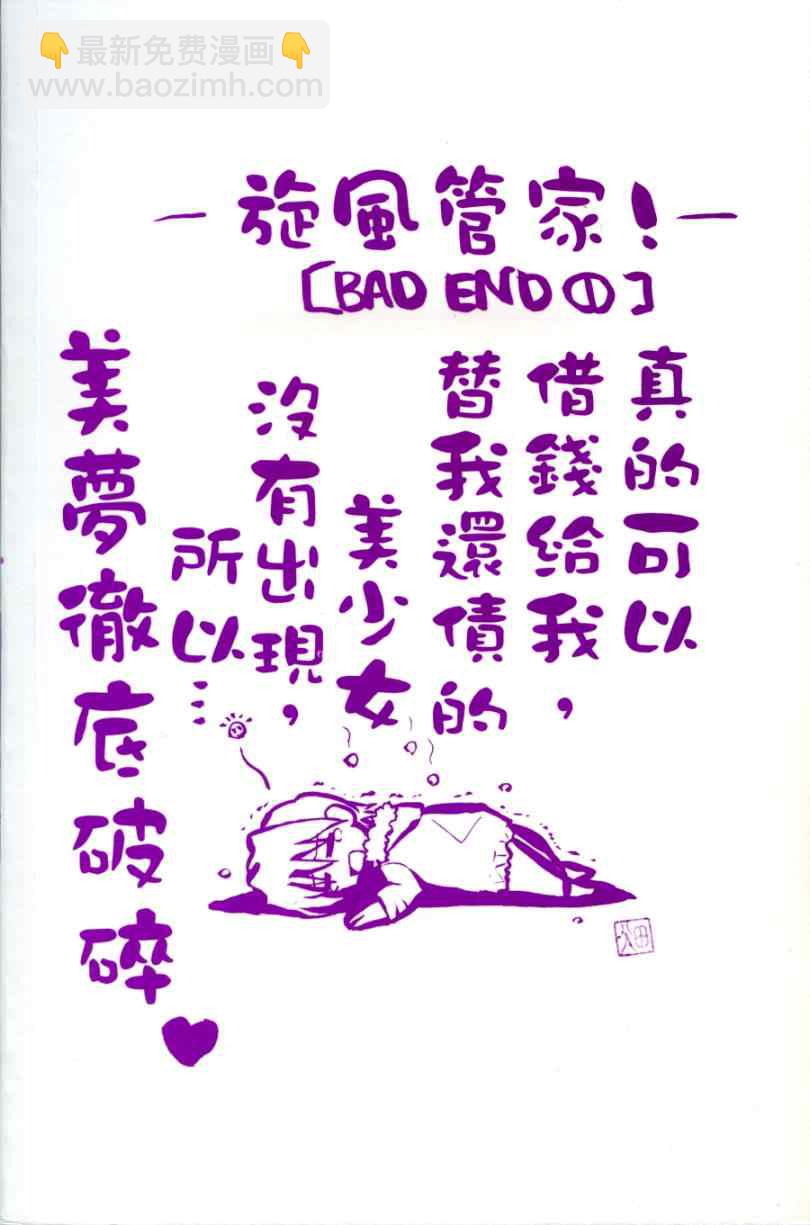 👇最新免费漫画👇
www.baozimh.com
—旋風管家！—
［BAD END①］
真的可以
借錢給我，
替我還債的
美少女
沒有出現，
所以…
美夢徹底破碎♥
畑